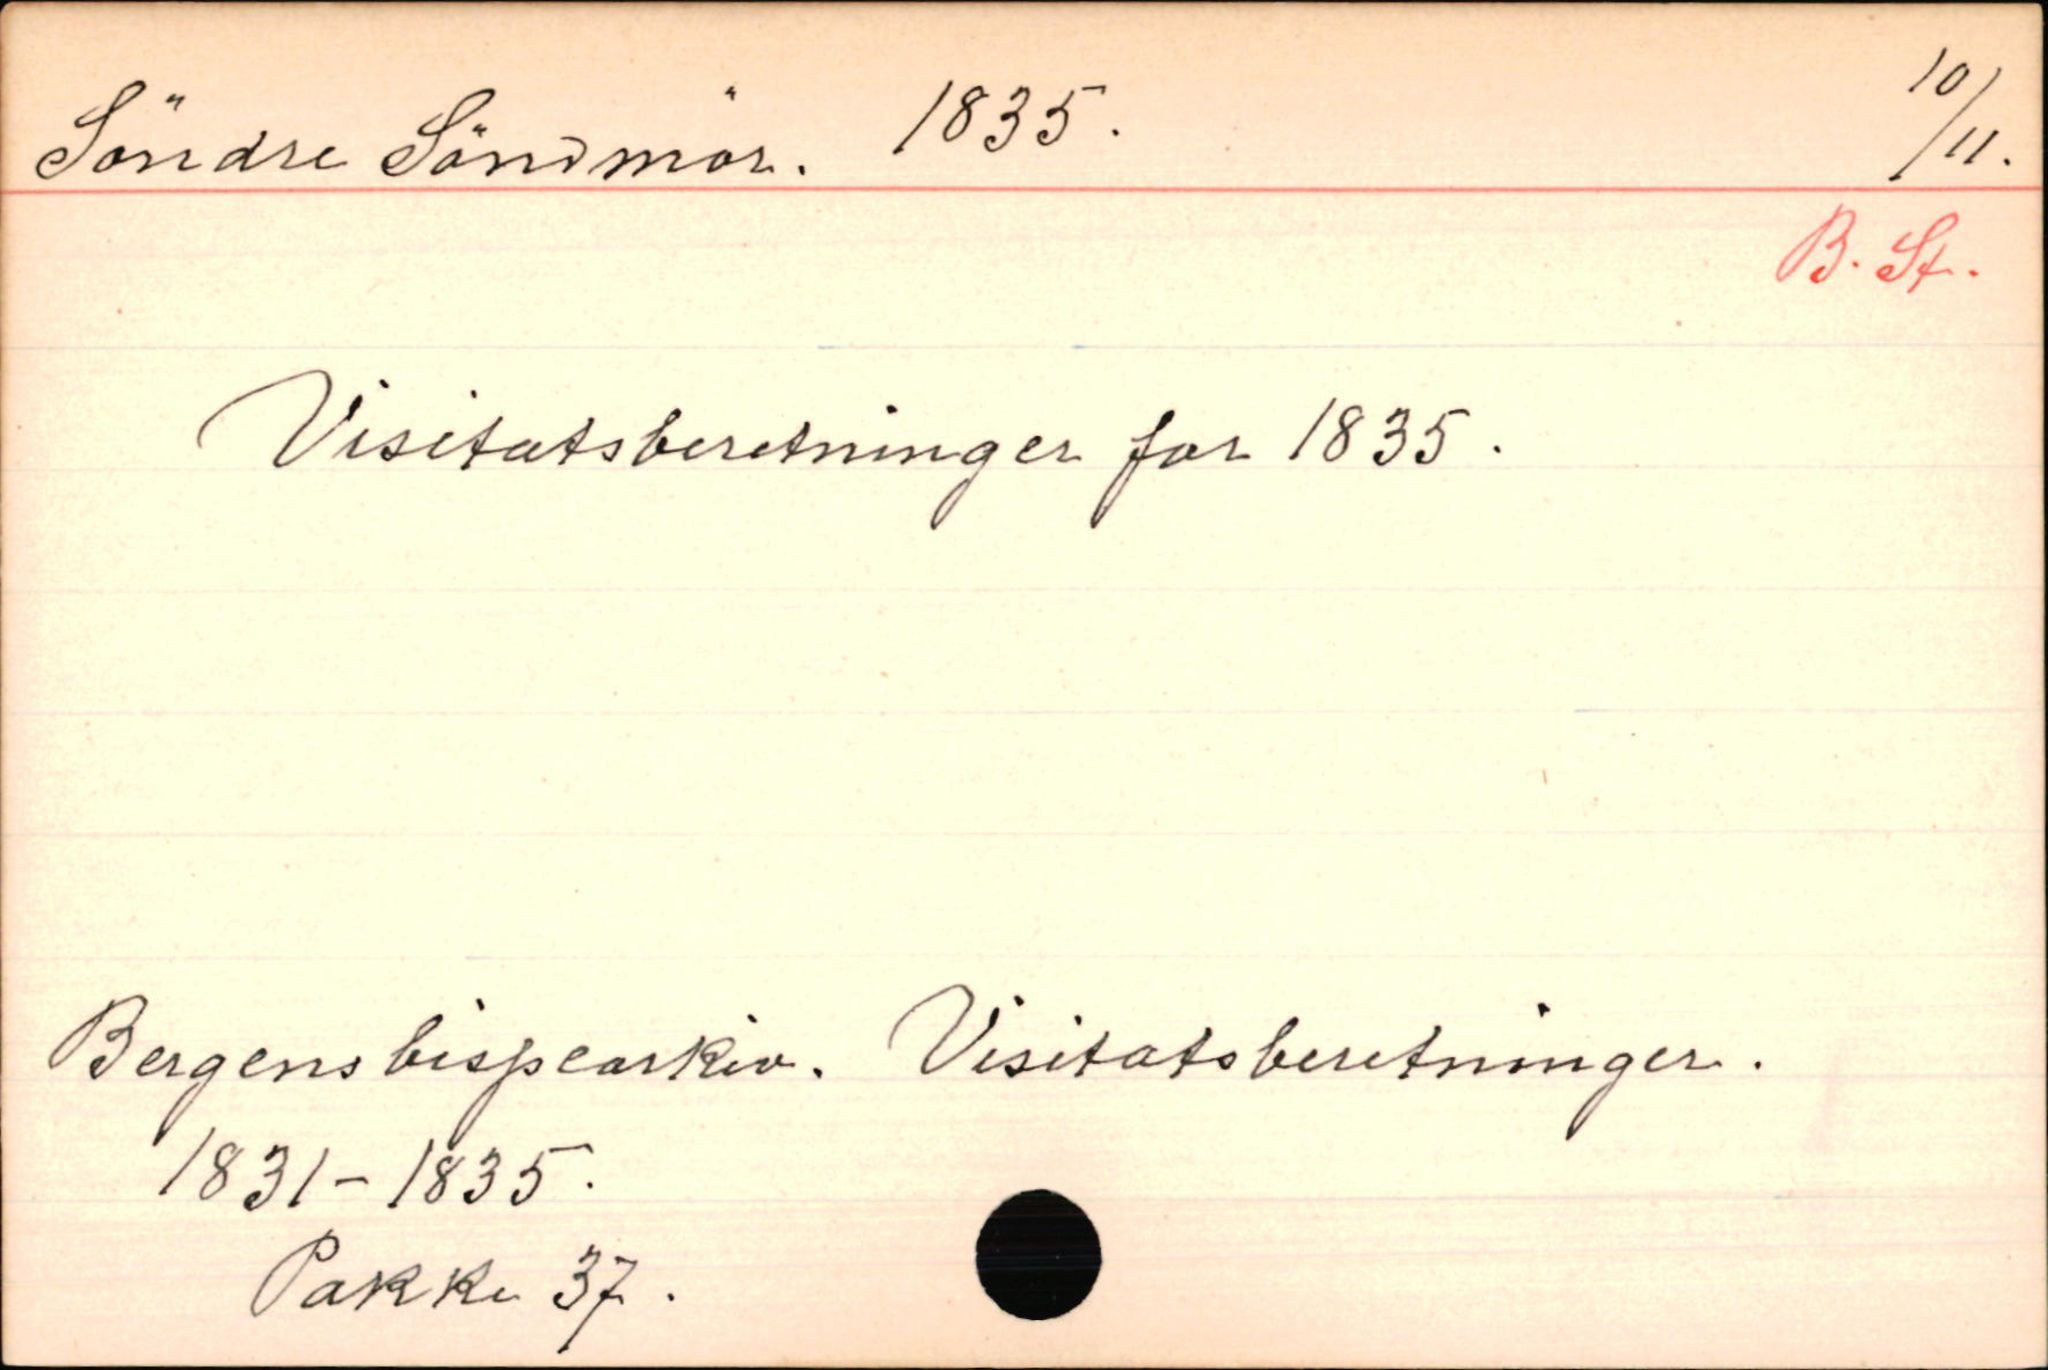 Söndre Söndmör. 1835. 10/11.
B. St.
Visitatsberetninger for 1835.
Bergens bispearkiv. Visitatsberetninger.
1831-1835.
Pakke 37.